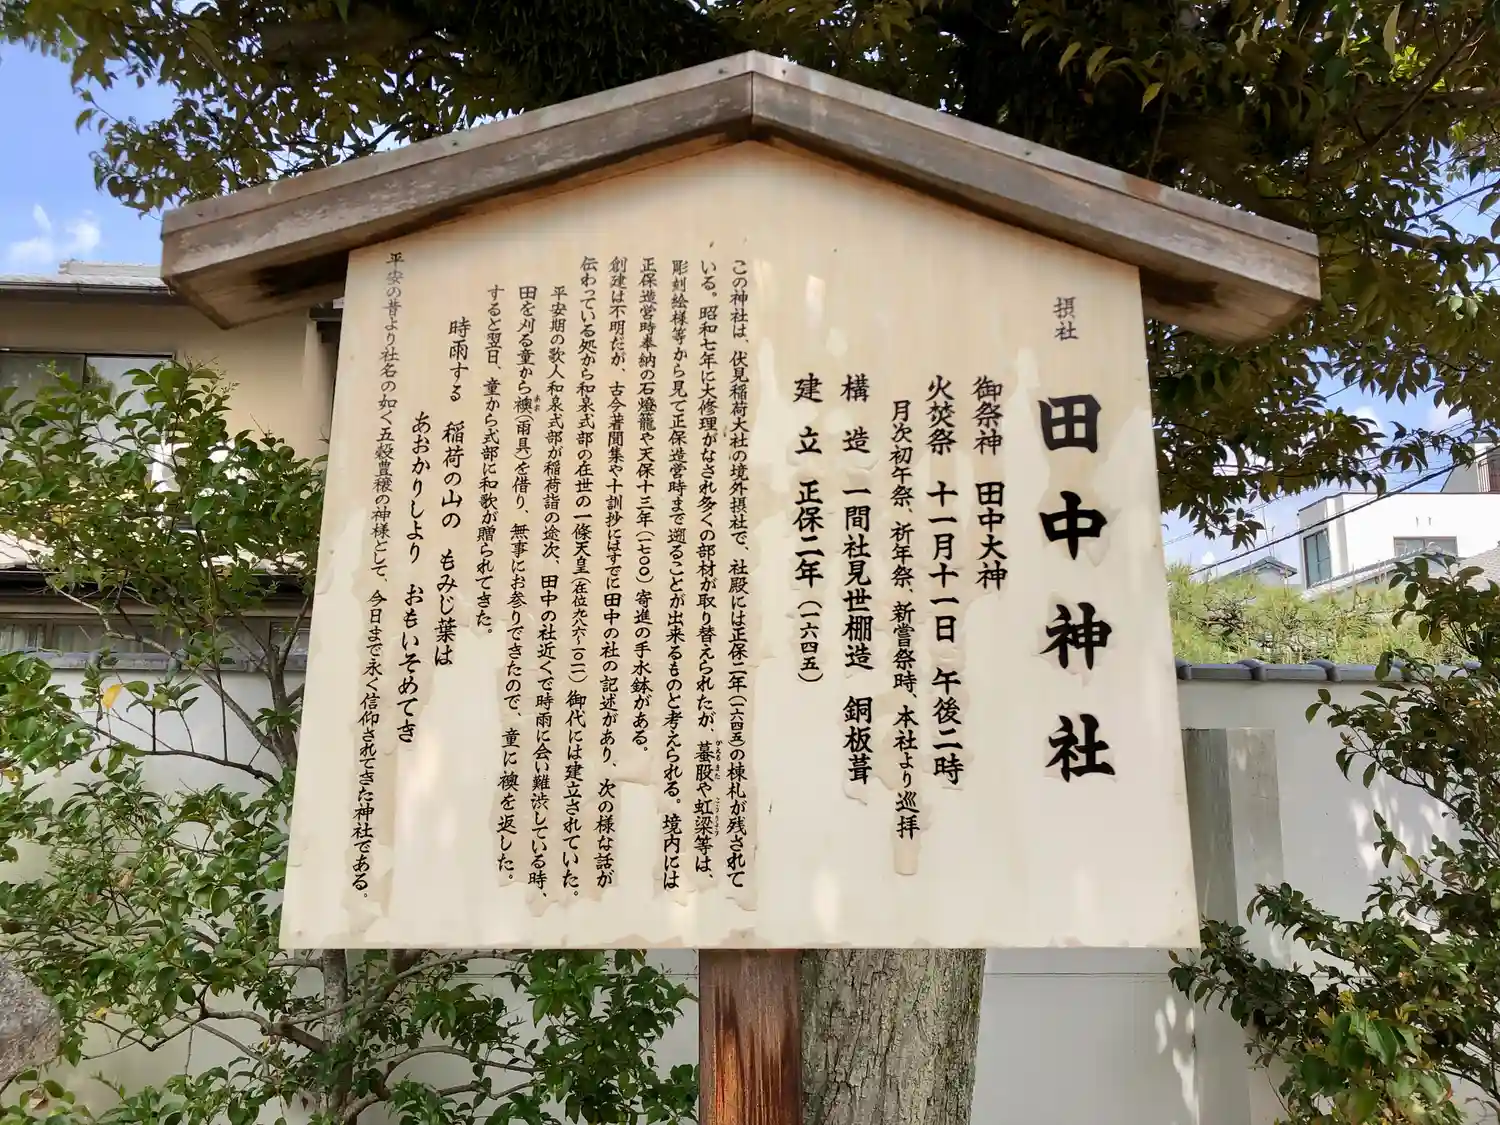 摂社
田中神社
御祭神 田中大神
火焚祭 十一月十一日 午後二時
月次初午祭、祈年祭、新嘗祭時、本社より巡拝
構造 一間社見世棚造 銅板葺
建立 正保二年(一六四五)
この神社は、伏見稲荷大社の境外摂社で、社殿には正保二年(一六四五)の棟札が残されて
いる。昭和七年に大修理がなされ多くの部材が取り替えられたが、蟇股や虹梁等は、
かえるまた こうりょう
彫刻絵様等から見て正保造営時まで遡ることが出来るものと考えられる。境内には
正保造営時奉納の石燈籠や天保十三年(一七〇〇)寄進の手水鉢がある。
創建は不明だが、古今著聞集や十訓抄にはすでに田中の社の記述があり、次の様な話が
伝わっている処から和泉式部の在世の一條天皇(在位九八六~一〇一一)御代には建立されていた。
平安期の歌人和泉式部が稲荷詣の途次、田中の社近くで時雨に会い難渋している時、
田を刈る童から襖(雨具)を借り、無事にお参りできたので、童に襖を返した。
あお
すると翌日、童から式部に和歌が贈られてきた。
時雨する 稲荷の山の もみじ葉は
あおかりしより おもいそめてき
平安の昔より社名の如く五穀豊穣の神様として、今日まで永く信仰されてきた神社である。